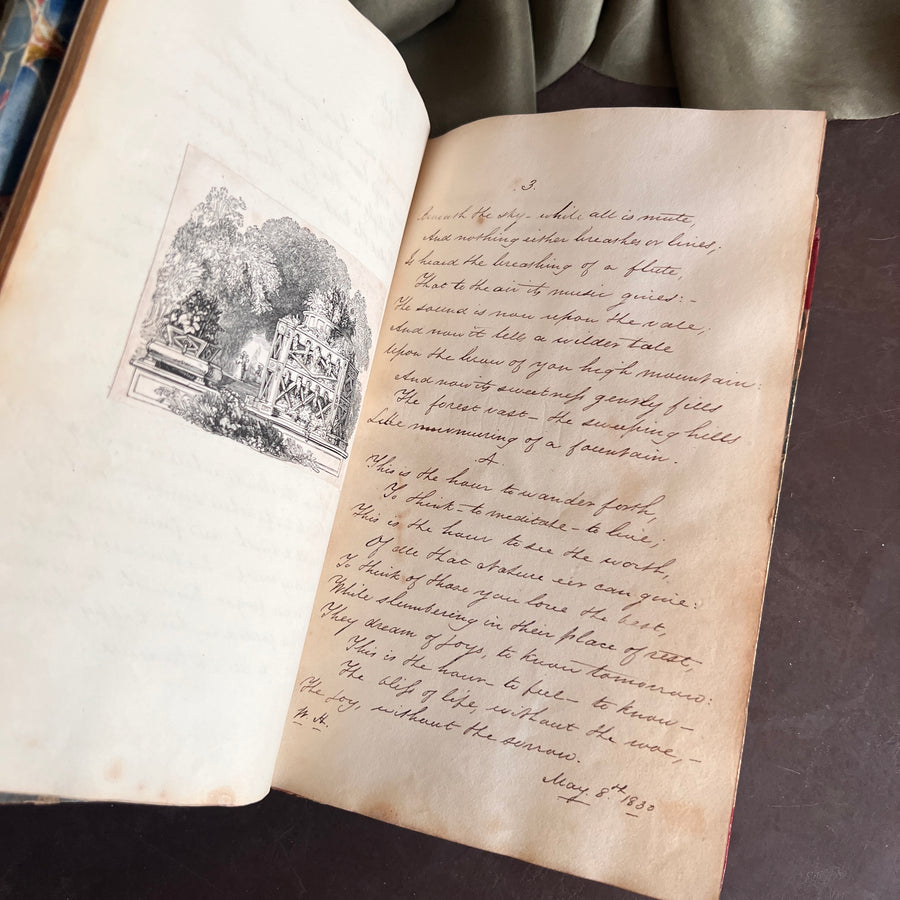 3.
Beneath the sky - while all is mute,
And nothing either breathes or lives;
Is heard the breathing of a flute,
That to the air its music gives: -
The sound is now upon the vale;
And now it tells a wilder tale
Upon the brow of yon high mountain:
And now its sweetness gently fills
The forest vast - the sweeping hills
Like murmuring of a fountain.
4
This is the hour to wander forth,
To think - to meditate - to live;
This is the hour to see the worth,
Of all that Nature e'er can give:
To think of those you love the best,
While slumbering in their place of rest,
They dream of joys, to know tomorrow:
This is the hour - to feel - to know -
The bliss of life, without the woe, -
The joy, without the sorrow.
W. H.
May 8th 1830